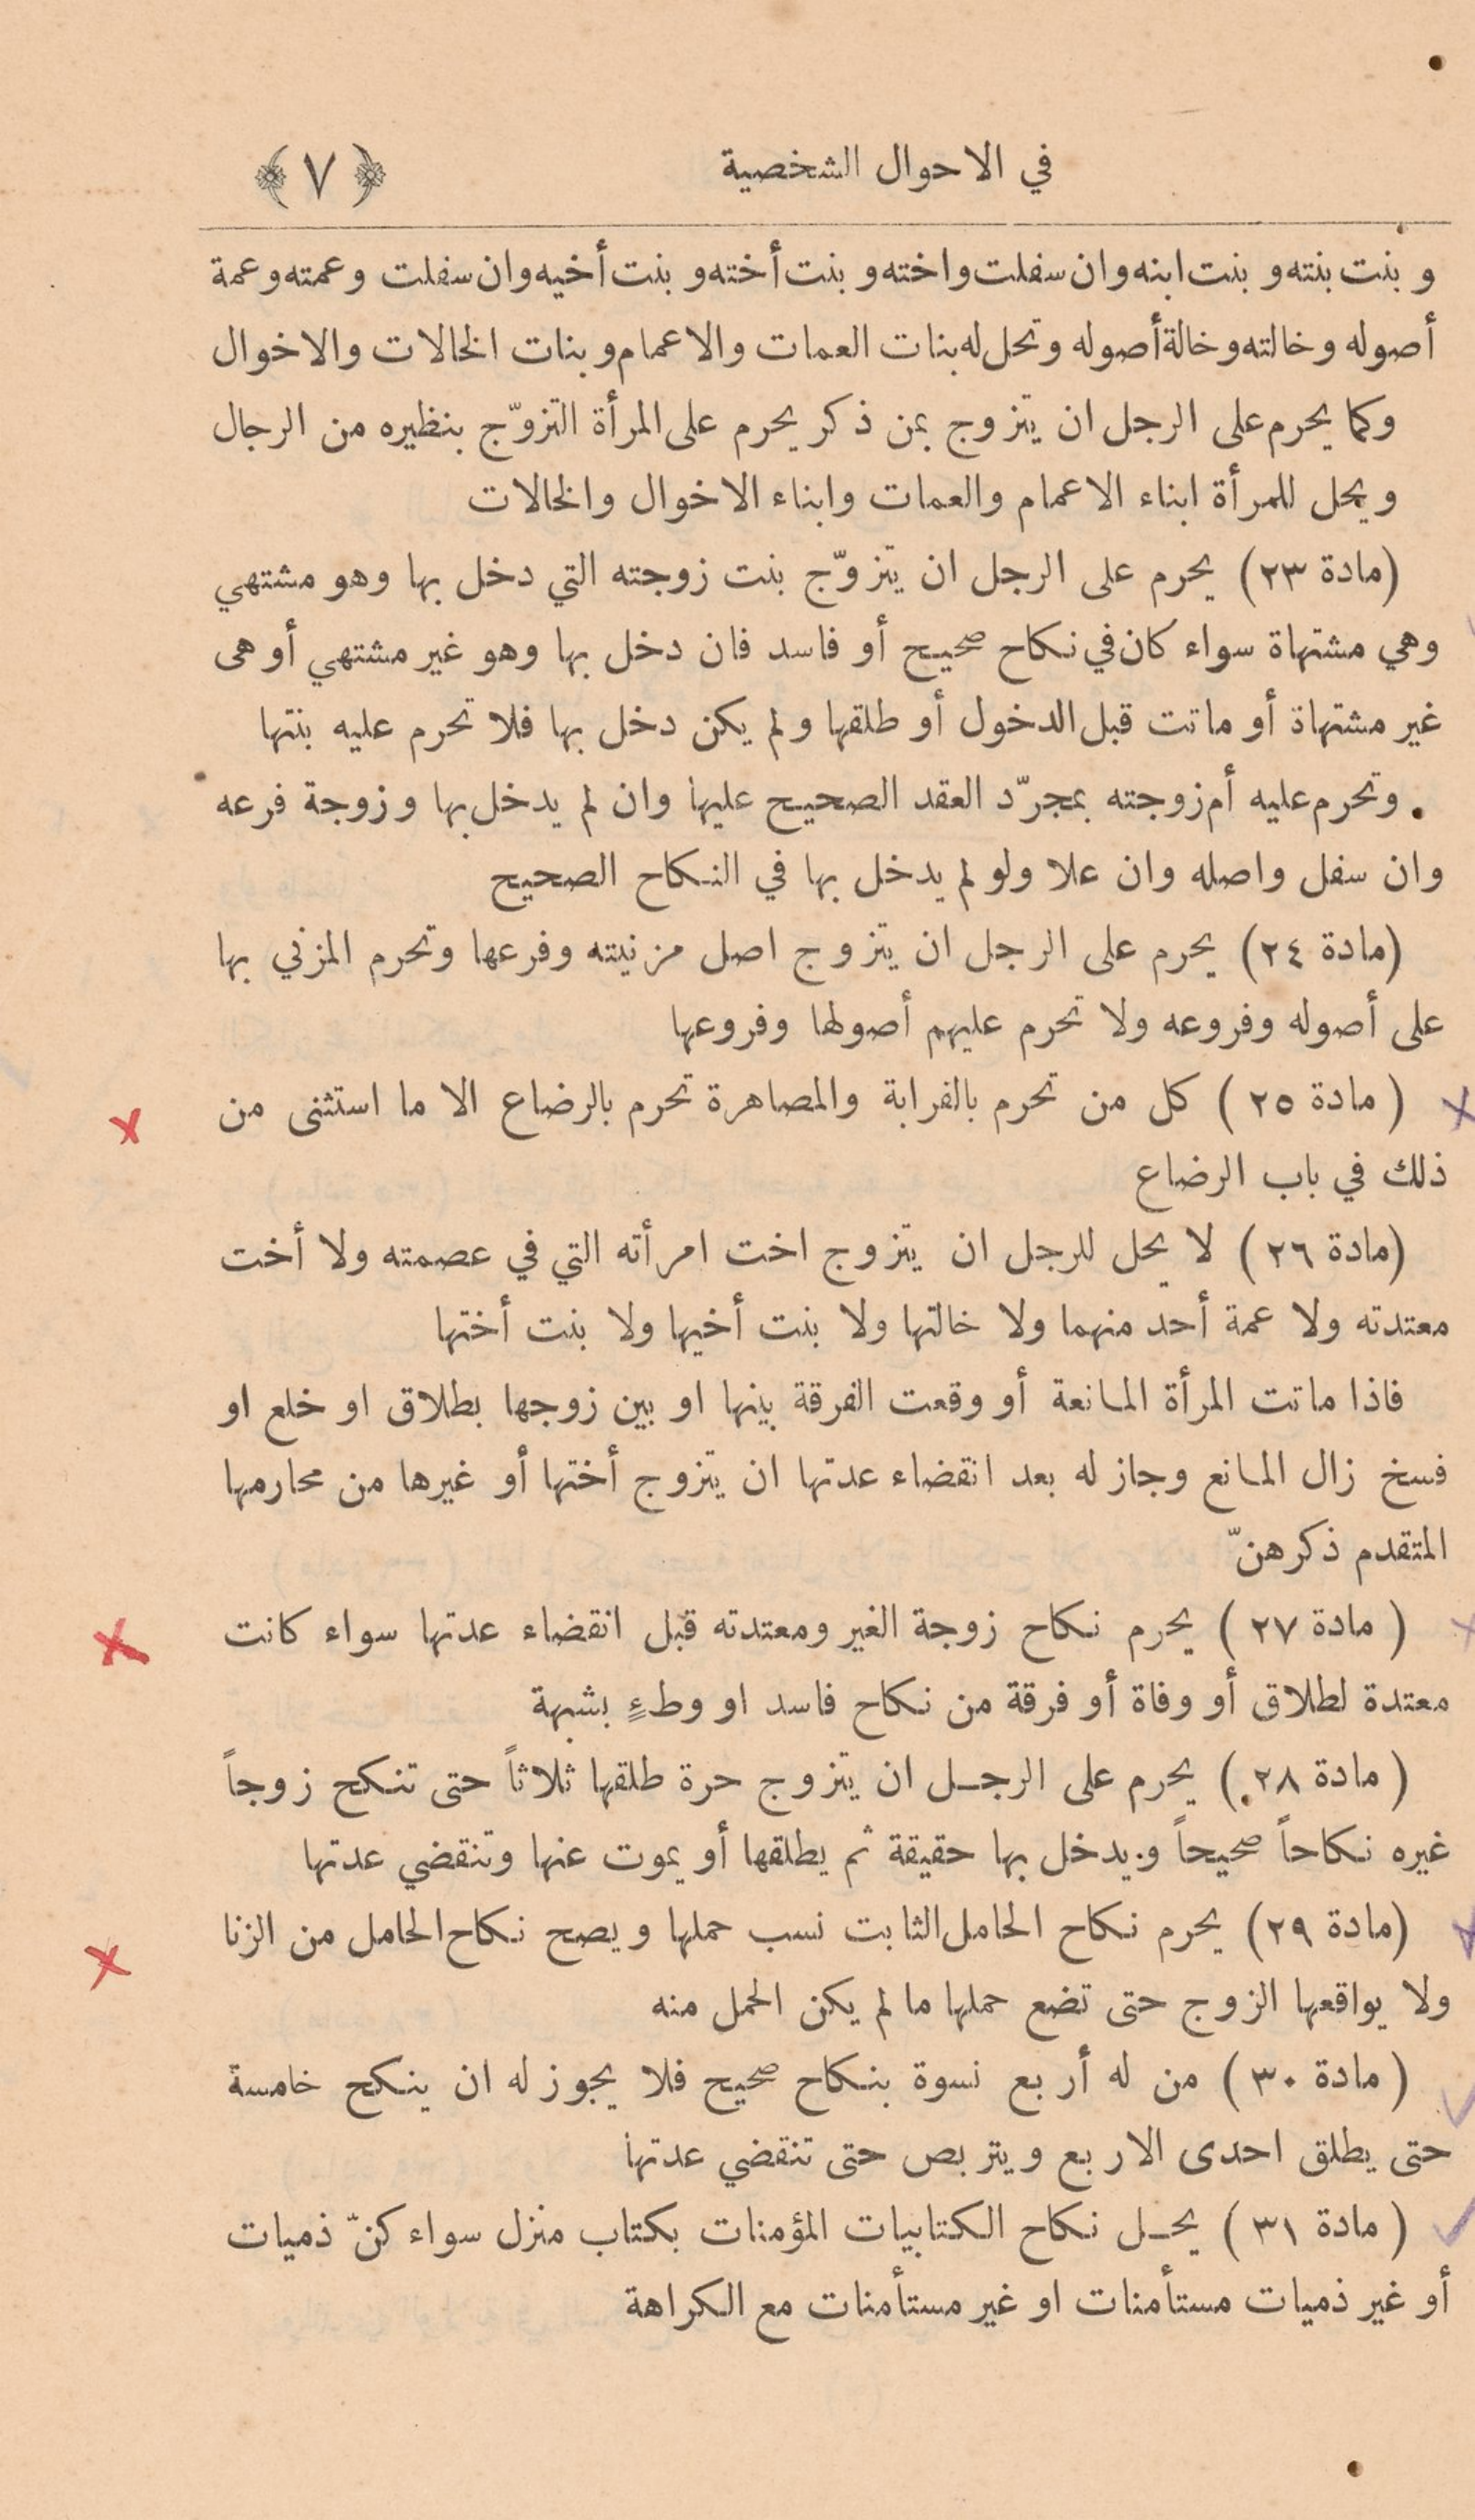 في الاحوال الشخصية ﴿٧﴾
وبنت بنته وبنت ابنه وان سفلت واخته وبنت أخته وبنت أخيه وان سفلت وعمته وعمة
أصوله وخالته وخالة أصوله وتحل له بنات العمات والاعمام وبنات الخالات والاخوال
وكما يحرم على الرجل ان يتزوج بمن ذكر يحرم على المرأة التزوّج بنظيره من الرجال
ويحل للمرأة ابناء الاعمام والعمات وابناء الاخوال والخالات
(مادة ٢٣) يحرم على الرجل ان يتزوّج بنت زوجته التي دخل بها وهو مشتهي
وهي مشتهاة سواء كان في نكاح صحيح أو فاسد فان دخل بها وهو غير مشتهي أو هى
غير مشتهاة أو ماتت قبل الدخول أو طلقها ولم يكن دخل بها فلا تحرم عليه بنتها
وتحرم عليه أم زوجته بمجرّد العقد الصحيح عليها وان لم يدخل بها وزوجة فرعه
وان سفل واصله وان علا ولو لم يدخل بها في النكاح الصحيح
(مادة ٢٤) يحرم على الرجل ان يتزوج اصل مزنيته وفرعها وتحرم المزني بها
على أصوله وفروعه ولا تحرم عليهم أصولها وفروعها
(مادة ٢٥) كل من تحرم بالقرابة والمصاهرة تحرم بالرضاع الا ما استثنى من
ذلك في باب الرضاع
(مادة ٢٦) لا يحل للرجل ان يتزوج اخت امرأته التي في عصمته ولا أخت
معتدته ولا عمة أحد منهما ولا خالتها ولا بنت أخيها ولا بنت أختها
فاذا ماتت المرأة المانعة أو وقعت الفرقة بينها او بين زوجها بطلاق او خلع او
فسخ زال المانع وجاز له بعد انقضاء عدتها ان يتزوج أختها أو غيرها من محارمها
المتقدم ذكرهنّ
(مادة ٢٧) يحرم نكاح زوجة الغير ومعتدته قبل انقضاء عدتها سواء كانت
معتدة لطلاق أو وفاة أو فرقة من نكاح فاسد او وطءٍ بشبهة
(مادة ٢٨) يحرم على الرجل ان يتزوج حرة طلقها ثلاثاً حتى تنكح زوجاً
غيره نكاحاً صحيحاً ويدخل بها حقيقة ثم يطلقها أو يموت عنها وتنقضي عدتها
(مادة ٢٩) يحرم نكاح الحامل الثابت نسب حملها ويصح نكاح الحامل من الزنا
ولا يواقعها الزوج حتى تضع حملها ما لم يكن الحمل منه
(مادة ٣٠) من له أربع نسوة بنكاح صحيح فلا يجوز له ان ينكح خامسة
حتى يطلق احدى الاربع ويتربص حتى تنقضي عدتها
(مادة ٣١) يحل نكاح الكتابيات المؤمنات بكتاب منزل سواء كنّ ذميات
أو غير ذميات مستأمنات او غير مستأمنات مع الكراهة